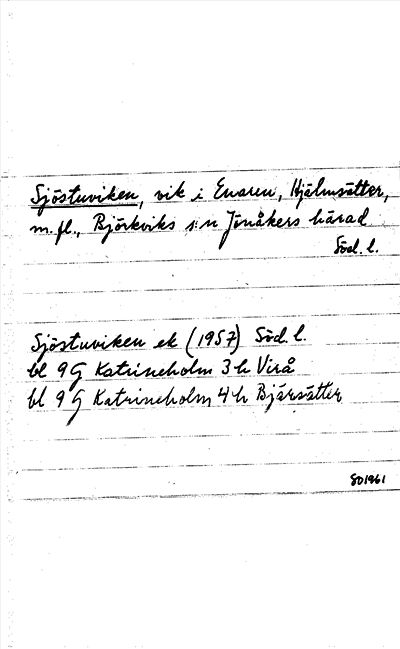 Sjöstuviken, vik i Enaren, Hjälmsätter,
m. fl., Björkviks s:n Jönåkers härad
Söd. l.
Sjöstuviken ek (1957) Söd. l.
bl 9 G Katrineholm 3 h Virå
bl 9 G Katrineholm 4 h Bjärsätter
SO1961